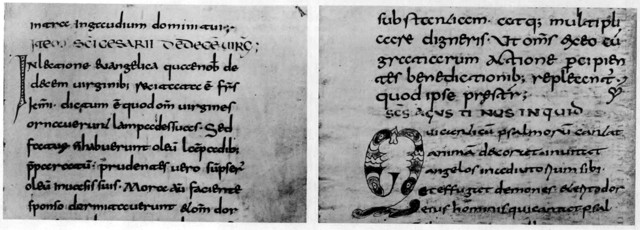 ingaudium domini tui;
ITEM SCI CESARII DE DECE VIRG;
INlectione euangelica quaenob de
decem uirginibus recitata e frs
kmi. dictum e quod om uirgines
ornauerunt lampades suas. Sed
fatuae n habuerunt oleu
prudentes uero
oleu inuasis suis. Mora au faciente
sponso dormitauerunt et om dor
substantiam. atq; multipli
care digneris. Ut oms exeo eu
graciarum actione percipien
tes benedictionib; repleant.
quod ipse prestet;
SCS AGUSTINUS INQUID
Qui canticu psalmoru cantat
anima decorat inuitat
angelos inadiutorium sibi
et effugat demones
hominis qui cantat psal